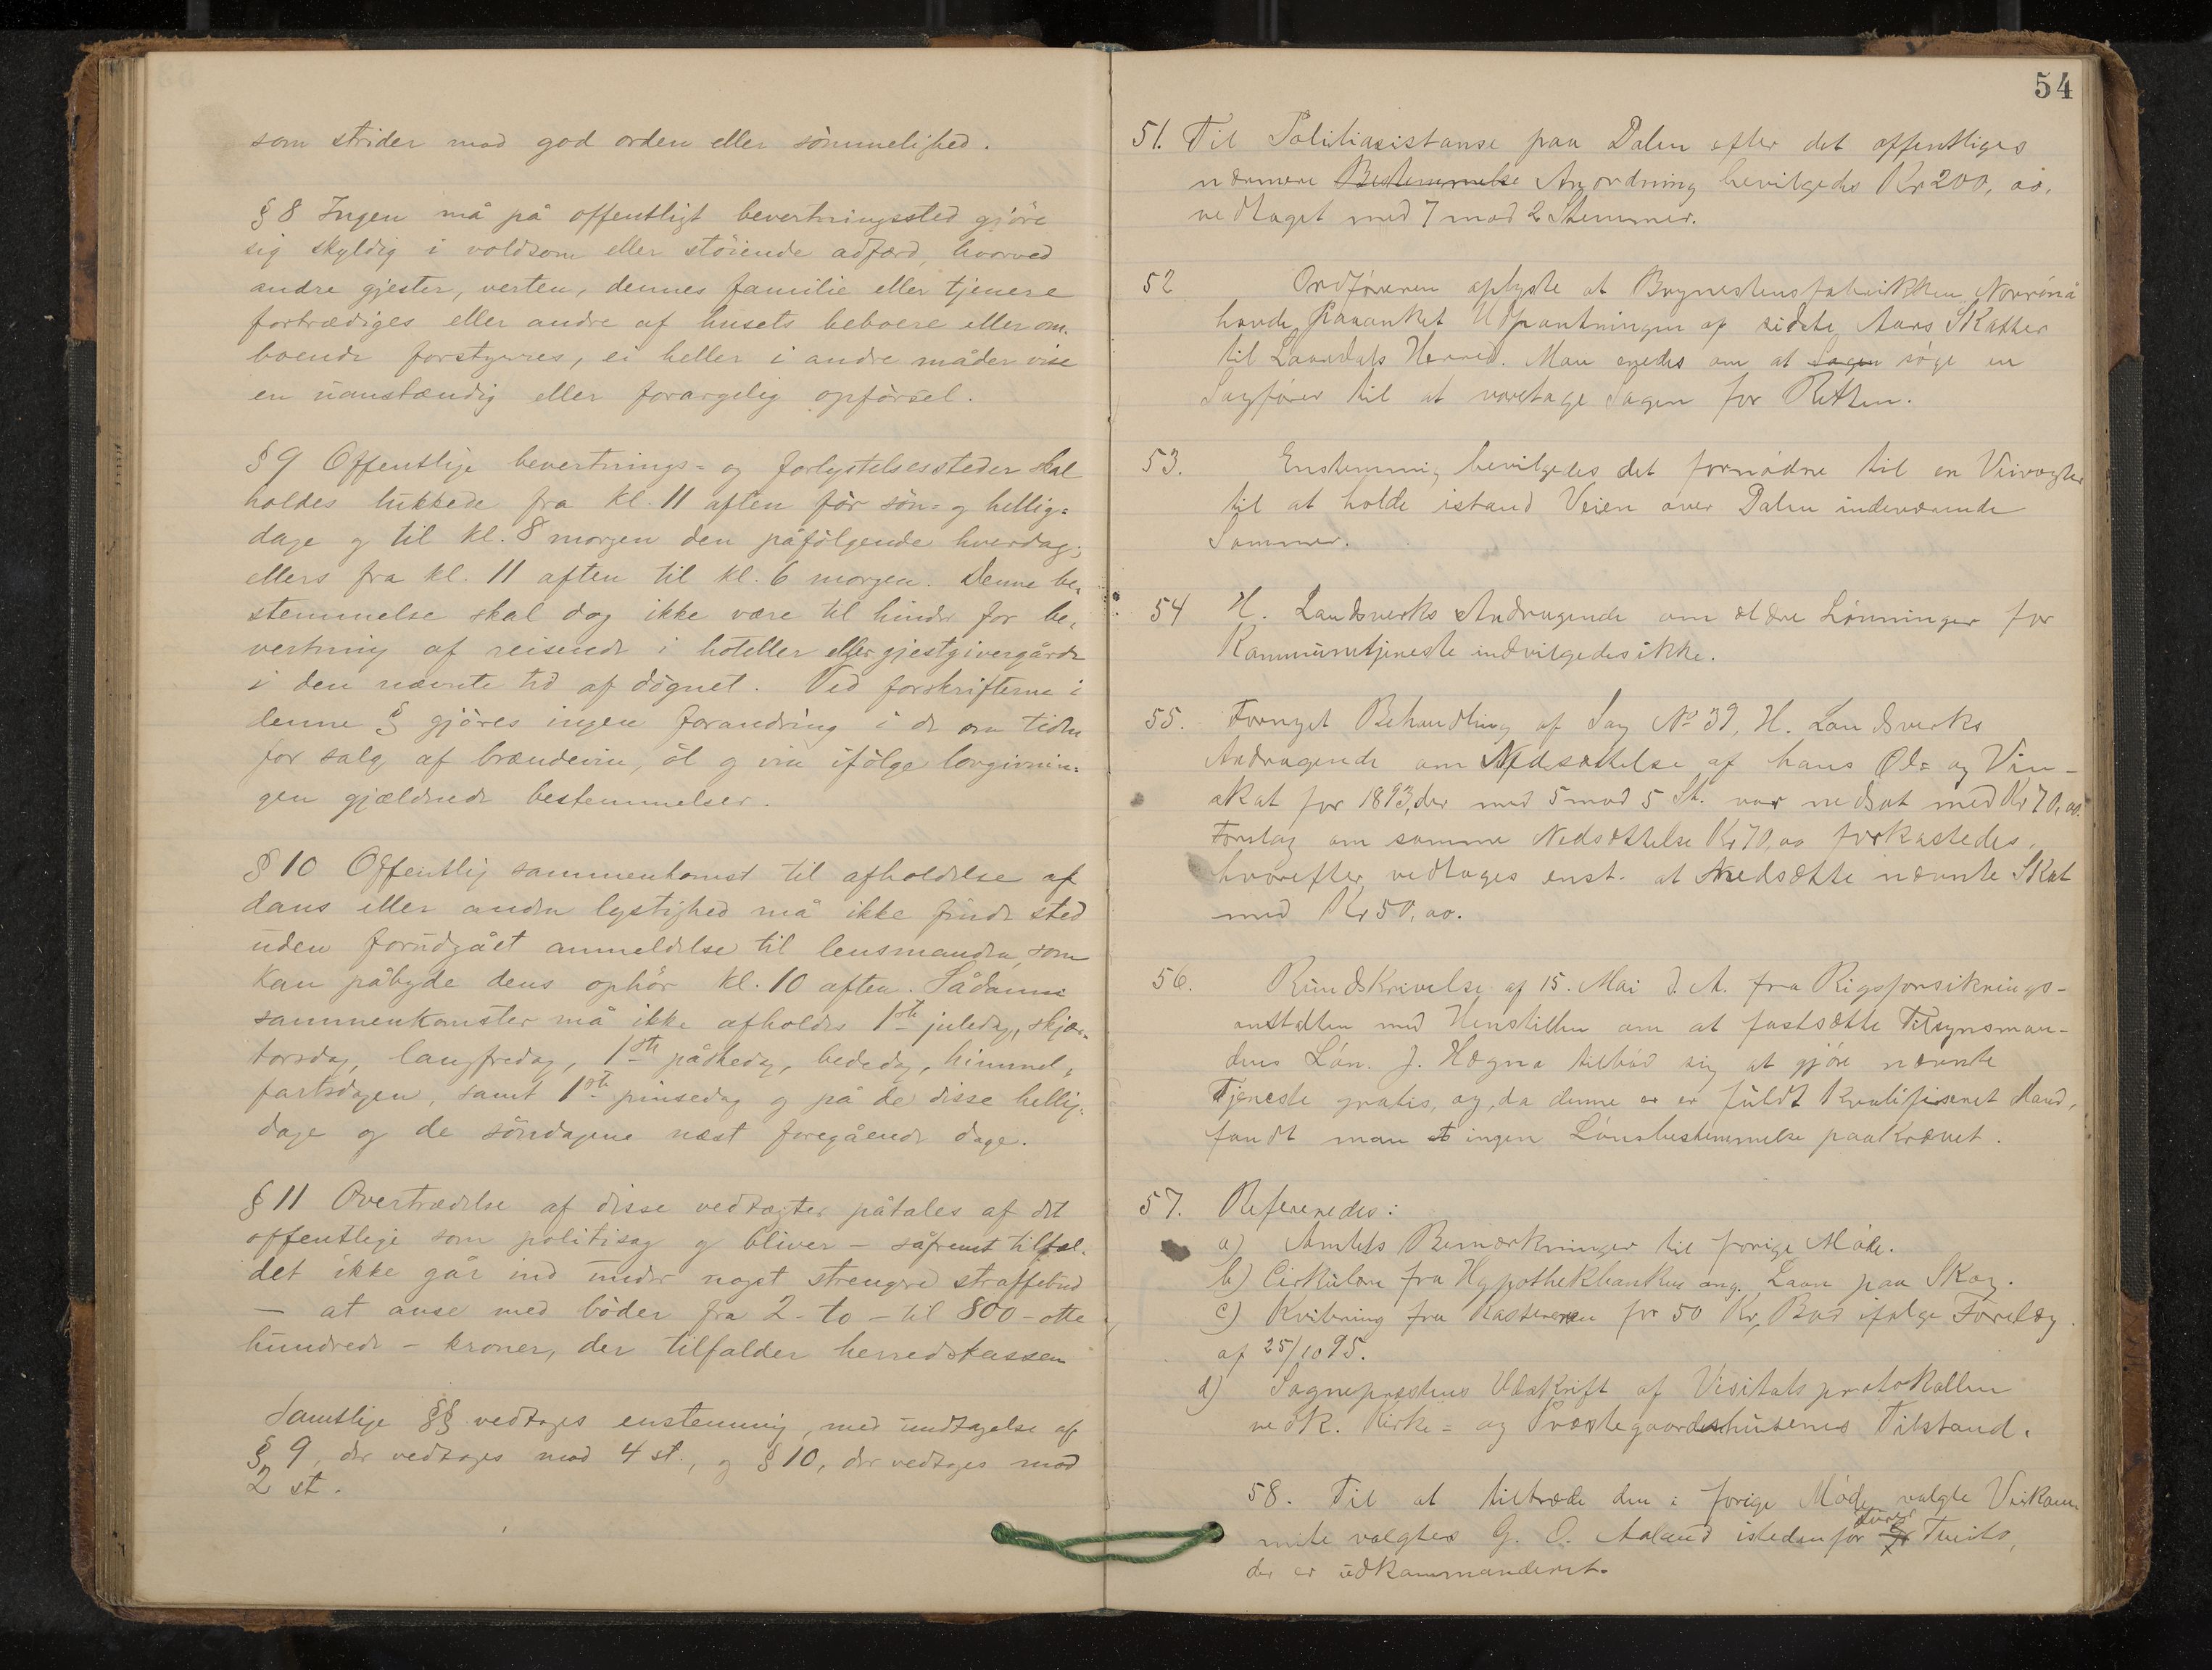 som strider mod god orden eller sömmelighed.
§ 8 Ingen må på offentligt bevertningssted gjöre
sig skyldig i voldsom eller stöiende adfærd, hvorved
andre gjester, verten, dennes familie eller tjenere
fortrædiges eller andre af husets beboere eller om-
boende forstyrres, ei heller i andre måder vise
en uanstændig eller forargelig opförsel.
§ 9 Offentlige bevertnings- og forlystelsessteder skal
holdes lukkede fra kl. 11 aften för sön- og hellig-
dage og til kl. 8 morgen den påfölgende hverdag;
ellers fra kl. 11 aften til kl. 6 morgen. Denne be-
stemmelse skal dog ikke være til hinder for be-
vertning af reisende i hoteller eller gjestgivergårde
i den nævnte tid af dögnet. Ved forskrifterne i
denne § gjöres ingen forandring i de om tiden
for salg af brændevin, öl og vin ifölge lovgivnin-
gen gjældende bestemmelser.
§ 10 Offentlig sammenkomst til afholdelse af
dans eller anden lystighed må ikke finde sted
uden forudgået anmeldelse til lensmanden, som
kan påbyde dens ophör kl. 10 aften. Sådanne
sammenkomster må ikke afholdes 1ste juledag, skjær-
torsdag, langfredag, 1ste påskedag, bededag, himmel-
fartsdagen, samt 1ste pinsedag og på de disse hellig-
dage og de söndagene næst foregående dage.
§ 11 Overtrædelse af disse vedtægter påtales af det
offentlige som politisag og bliver – såfremt tilfæl-
det ikke går ind under noget strengere straffebud
– at anse med böder fra 2 - to - til 800 - otte
hundrede - kroner, der tilfalder herredskassen
Samtlige §§ vedtages enstemmig, med undtagelse af
§ 9, der vedtages mod 4 st., og § 10, der vedtages mod
2 st.
54
51. Til Politiasistanse paa Dalen efter det offentliges
nærmere Bestemmelse Anordning bevilgedes Kr 200, oo.
vedtaget med 7 mod 2 Stemmer.
52 Ordföreren oplyste at Brynestensfabrikken Norröna
havde paaanket Udpantningen af sidste Aars Skatter
til Laurdals Herred. Man enedes om at Sagen söge en
Sagförer til at varetage Sagen for Retten.
53. Enstemmig bevilgedes det fornödne til en Veivogter
til at holde istand Veien over Dalen indeværende
Sommer.
54 H. Landsverks Andragende om ældre Lönninger for
Kommunetjeneste indvilgedes ikke.
55. Fornyet Behandling af Sag No 39, H. Landsverks
Andragende om Nedsættelse af hans Øl- og Vin-
skat for 1893, der med 5 mod 5 St. var nedsat med Kr 70, oo.
Forslag om samme Nedsættelse Kr 70, oo forkastedes,
hvorefter vedtages enst. at nedsætte nævnte Skat
med Kr 50, oo.
56. Rundskrivelse af 15. Mai d. A. fra Rigsforsiknings-
anstalten med Henstillen om at fastsætte Tilsynsman-
dens Lön. J. Hægna tilböd sig at gjöre nævnte
Tjeneste gratis, og, da denne er er fuldt kvalifiseret Mand,
fandt man ingen Lönsbestemmelse paakrævet.
57. Refereredes:
a) Amtets Bemærkninger til forige Möde.
b) Cirkulære fra Hypothekbanken ang. Laan paa Skog.
c) Kvittering fra Kassereren for 50 Kr, Bod ifølge Forelæg
af 25/10 95.
d) Sognepræstens Udskrift af Visitatsprotokollen
vedk. Kirke- og Præstegaardshusenes Tilstand.
58. Til at tiltræde den i forige Möde valgte Veikom-
mite valgtes G. O. Aaland istedenfor Tveito,
der er udkommanderet.